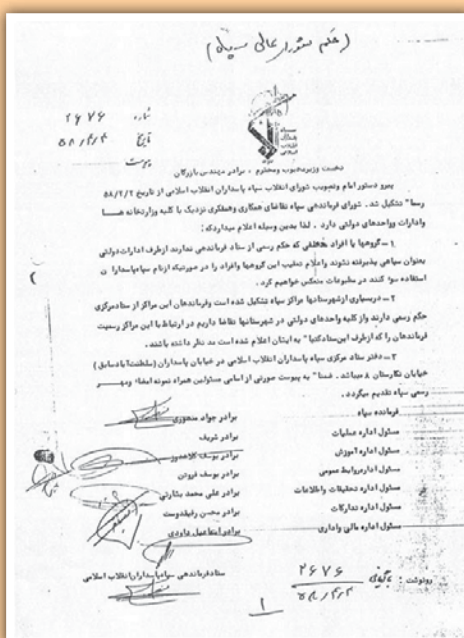 (حکم شورای عالی سپاه)
شماره ۲۶۷۶
تاریخ ۵۸/۳/۳
پیوست
سپاه پاسداران انقلاب اسلامی
نخست وزیر محبوب و محترم ، برادر مهندس بازرگان
پیرو دستور امام و تصویب شورای انقلاب سپاه پاسداران انقلاب اسلامی از تاریخ ۵۸/۲/۲
رسما" تشکیل شد . شورای فرماندهی سپاه تقاضای همکاری وهمفکری نزدیک با کلیه وزارتخانه هـــا
وادارات وواحدهای دولتی دارد . لذا بدین وسیله اعلام میداردکه :
۱ ــ گروهها یا افراد مختلفی که حکم رسمی از ستاد فرماندهی ندارند ازطرف ادارات دولتی
بعنوان سپاهی پذیرفته نشوند واعلام تعقیب این گروهها وافراد را در صورتیکه ازنام سپاه پاسداران
استفاده سوء کنند در مطبوعات منعکس خواهیم کرد .
۲ ــ دربسیاری ازشهرستانها مراکز سپاه تشکیل شده است وفرماندهان این مراکز از ستادمرکزی
حکم رسمی دارند واز کلیه واحدهای دولتی در شهرستانها تقاضا داریم در ارتباط با این مراکز رسمیت
فرماندهان را که ازطرف این ستاد کتبا" به ایشان اعلام شده است مد نظر داشته باشند .
۳ ــ دفتر ستاد مرکزی سپاه پاسداران انقلاب اسلامی در خیابان پاسداران (سلطنت آباد سابق)
خیابان نگارستان ۸ میباشد . ضمنا" به پیوست صورتی از اسامی مسئولین همراه نمونه امضاء ومهـــر
رسمی سپاه تقدیم میگردد .
فرمانده سپاه برادر جواد منصوری
مسئول اداره عملیات برادر شریف
مسئول اداره آموزش برادر یوسف کلاهدوز
مسئول اداره روابط عمومی برادر یوسف فروتن
مسئول اداره تحقیقات واطلاعات برادر علی محمد بشارتی
مسئول اداره تدارکات برادر محسن رفیقدوست
مسئول اداره مالی واداری برادر اسماعیل داودی
ستاد فرماندهی سپاه پاسداران انقلاب اسلامی
رونوشت : بایگانی ۲۶۷۶
۵۸/۳/۳
۱